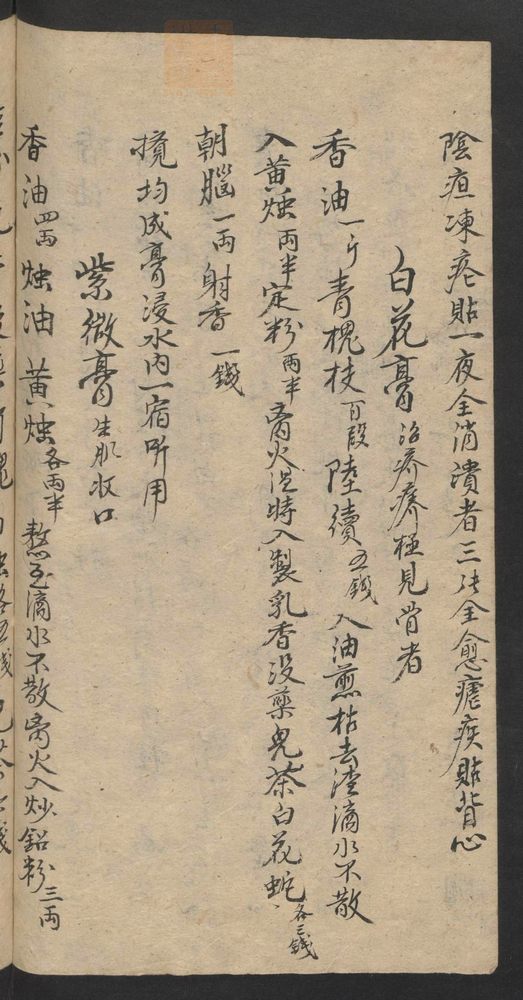 陰疽凍瘡貼一夜全消潰者三張全愈瘧疾貼背心
白花膏治疥癆極見骨者
香油一斤青槐枝百段陸續五錢入油煎枯去渣滴水不散
入黃烛兩半定粉兩半离火温時入製乳香没藥兒茶白花蛇各三錢
朝腦一兩射香一錢
攪均成膏浸水内一宿听用
紫微膏生肌收口
香油四兩烛油黃烛各兩半熬至滴水不散离火入炒鉛粉三兩